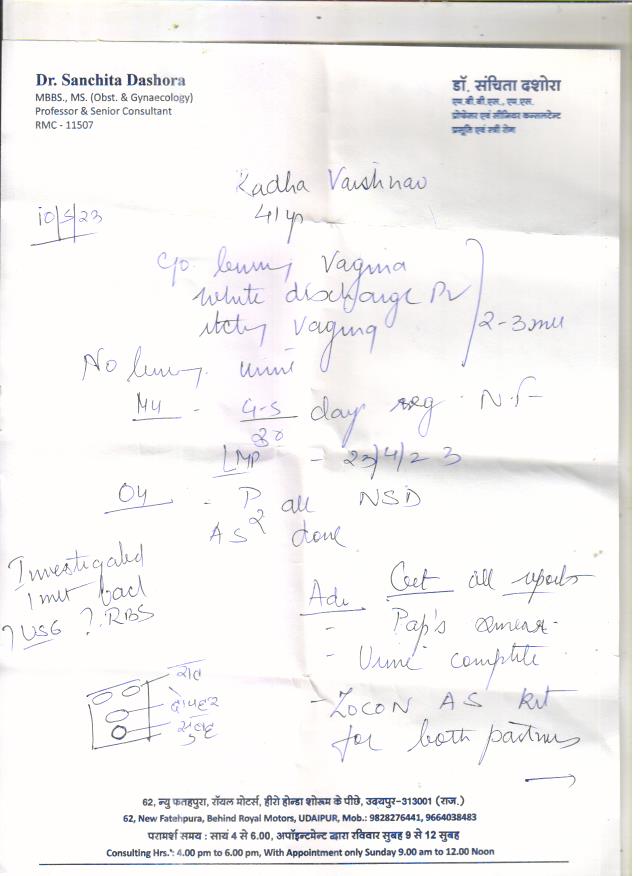 Dr. Sanchita Dashora
MBBS., MS. (Obst. & Gynaecology)
Professor & Senior Consultant
RMC - 11507
डॉ. संचिता दशोरा
एम.बी.बी.एस., एम.एस.
प्रोफेसर एवं सीनियर कन्सलटेन्ट
प्रसूति एवं स्त्री रोग
Radha Vaishnav
10/5/23
41 yr
c/o Vagina
white discharge PV
itchy vagina
2-3
No urine
MH - 4-5/30 day reg. N.F
LMP - 23/4/23
OH - P2 all NSD
AS done
Investigated
1 back
? USG ? RBS
Adv Get all reports
- Pap's smear.
- Urine complete
- ZOCON AS Kit
for both partners
रात
दोपहर
सुबह
62, न्यु फतहपुरा, रॉयल मोटर्स, हीरो होन्डा शोरूम के पीछे, उदयपुर-313001 (राज.)
62, New Fatehpura, Behind Royal Motors, UDAIPUR, Mob.: 9828276441, 9664038483
परामर्श समय : सायं 4 से 6.00, अपॉइन्टमेन्ट द्वारा रविवार सुबह 9 से 12 सुबह
Consulting Hrs.: 4.00 pm to 6.00 pm, With Appointment only Sunday 9.00 am to 12.00 Noon